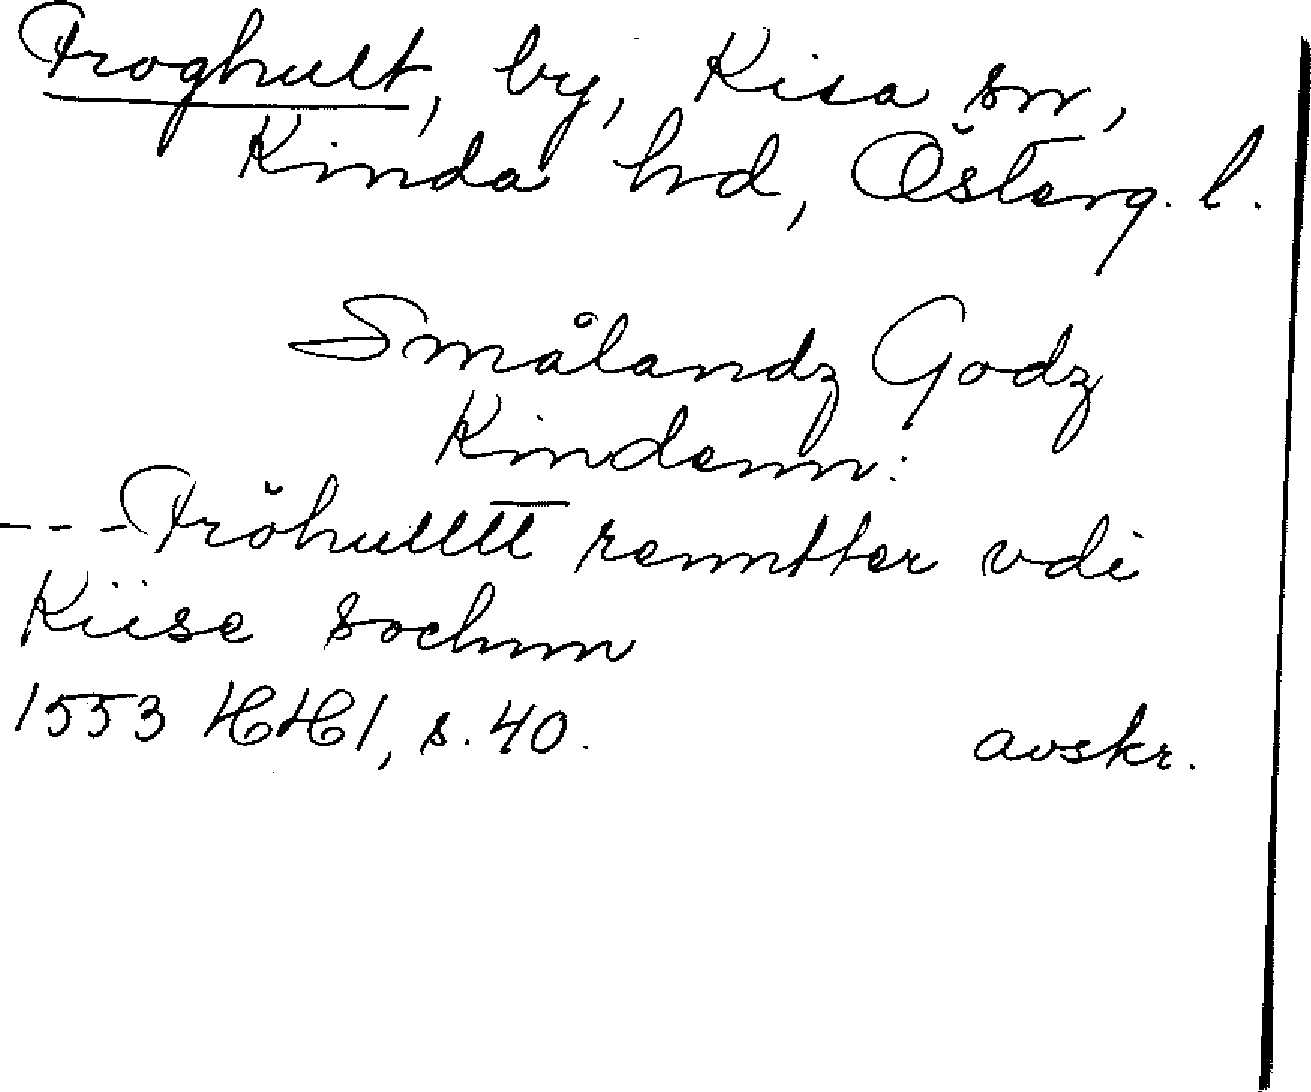 Troghult, by, Kisa sn,
Kinda hd, Österg. l.
Smålandz Godz
Kindenn:
---Tröhulltt renntter vdi
Kiise sochnn
1553 HH1, s. 40.
avskr.